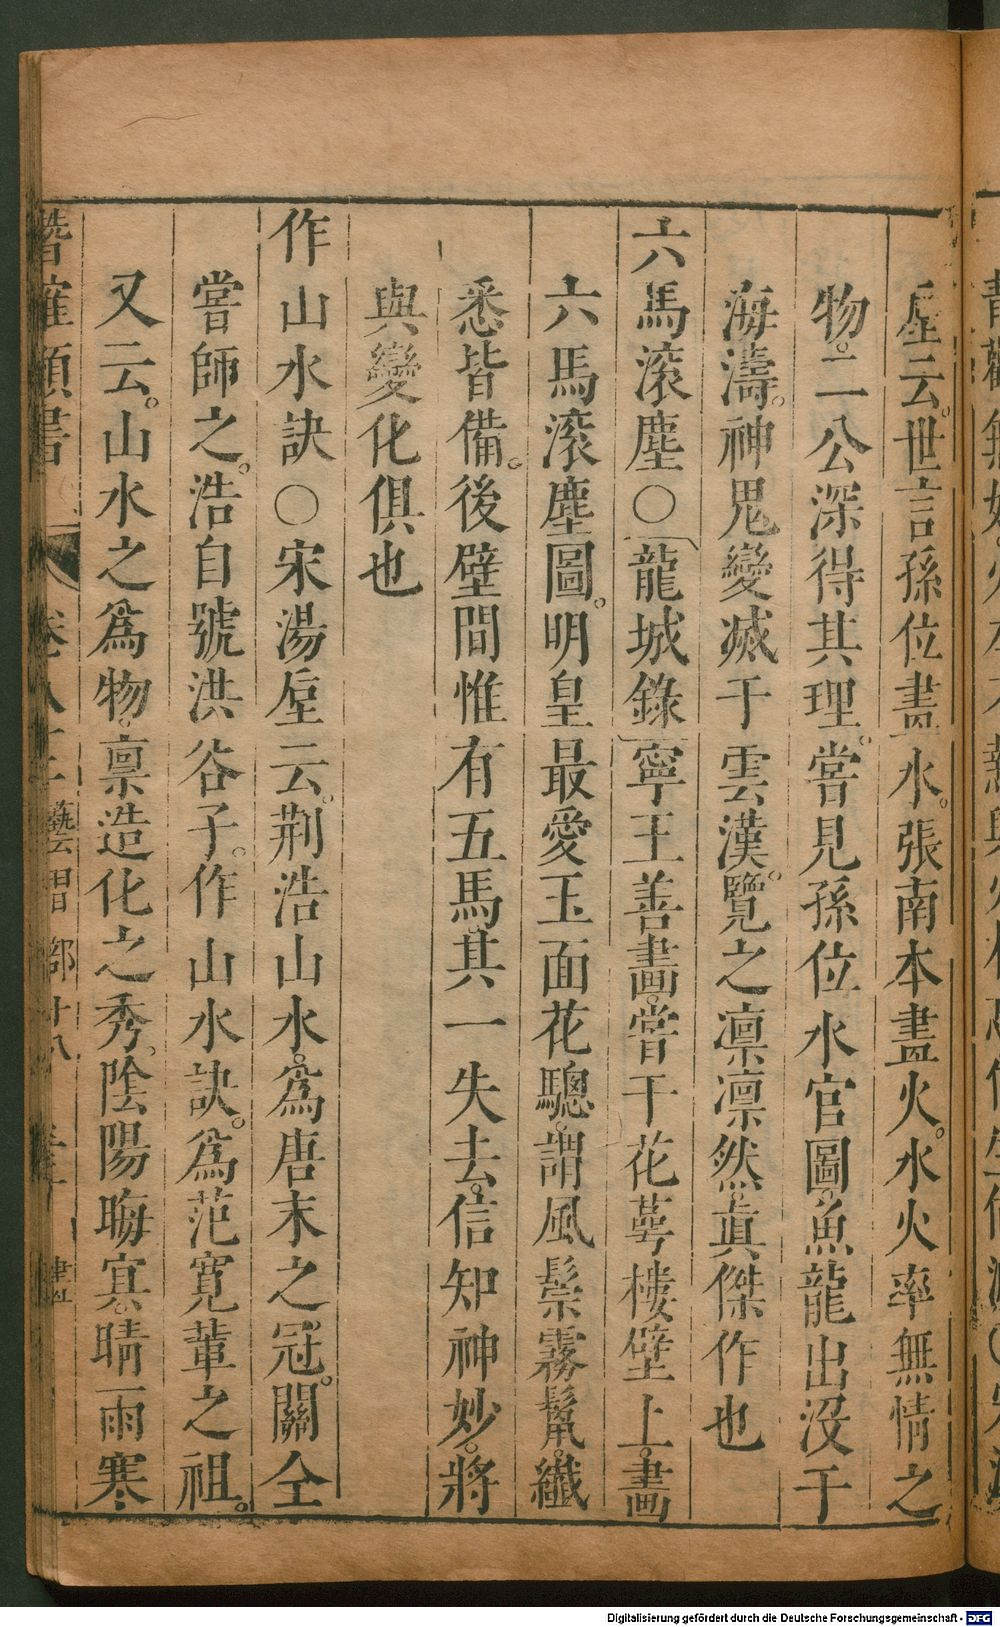 垕云。世言孫位畫水。張南本畫火。水火率無情之
物。二公深得其理。嘗見孫位水官圖。魚龍出沒于
海濤。神鬼變滅于雲漢。覽之凛凛然。真傑作也
六馬滾塵〇龍城錄寧王善畫。嘗于花萼樓壁上。畫
六馬滾塵圖。明皇最愛玉面花驄。謂風鬃霧鬣。纖
悉皆備。後壁間惟有五馬。其一失去。信知神妙。將
與變化俱也
作山水訣〇宋湯垕云。荆浩山水。為唐末之冠。關仝
嘗師之。浩自號洪谷子。作山水訣。為范寬輩之祖。
又云。山水之為物。禀造化之秀。陰陽晦冥。晴雨寒
潛確類書 卷八十二 藝習部十八
Digitalisierung gefördert durch die Deutsche Forschungsgemeinschaft - DFG